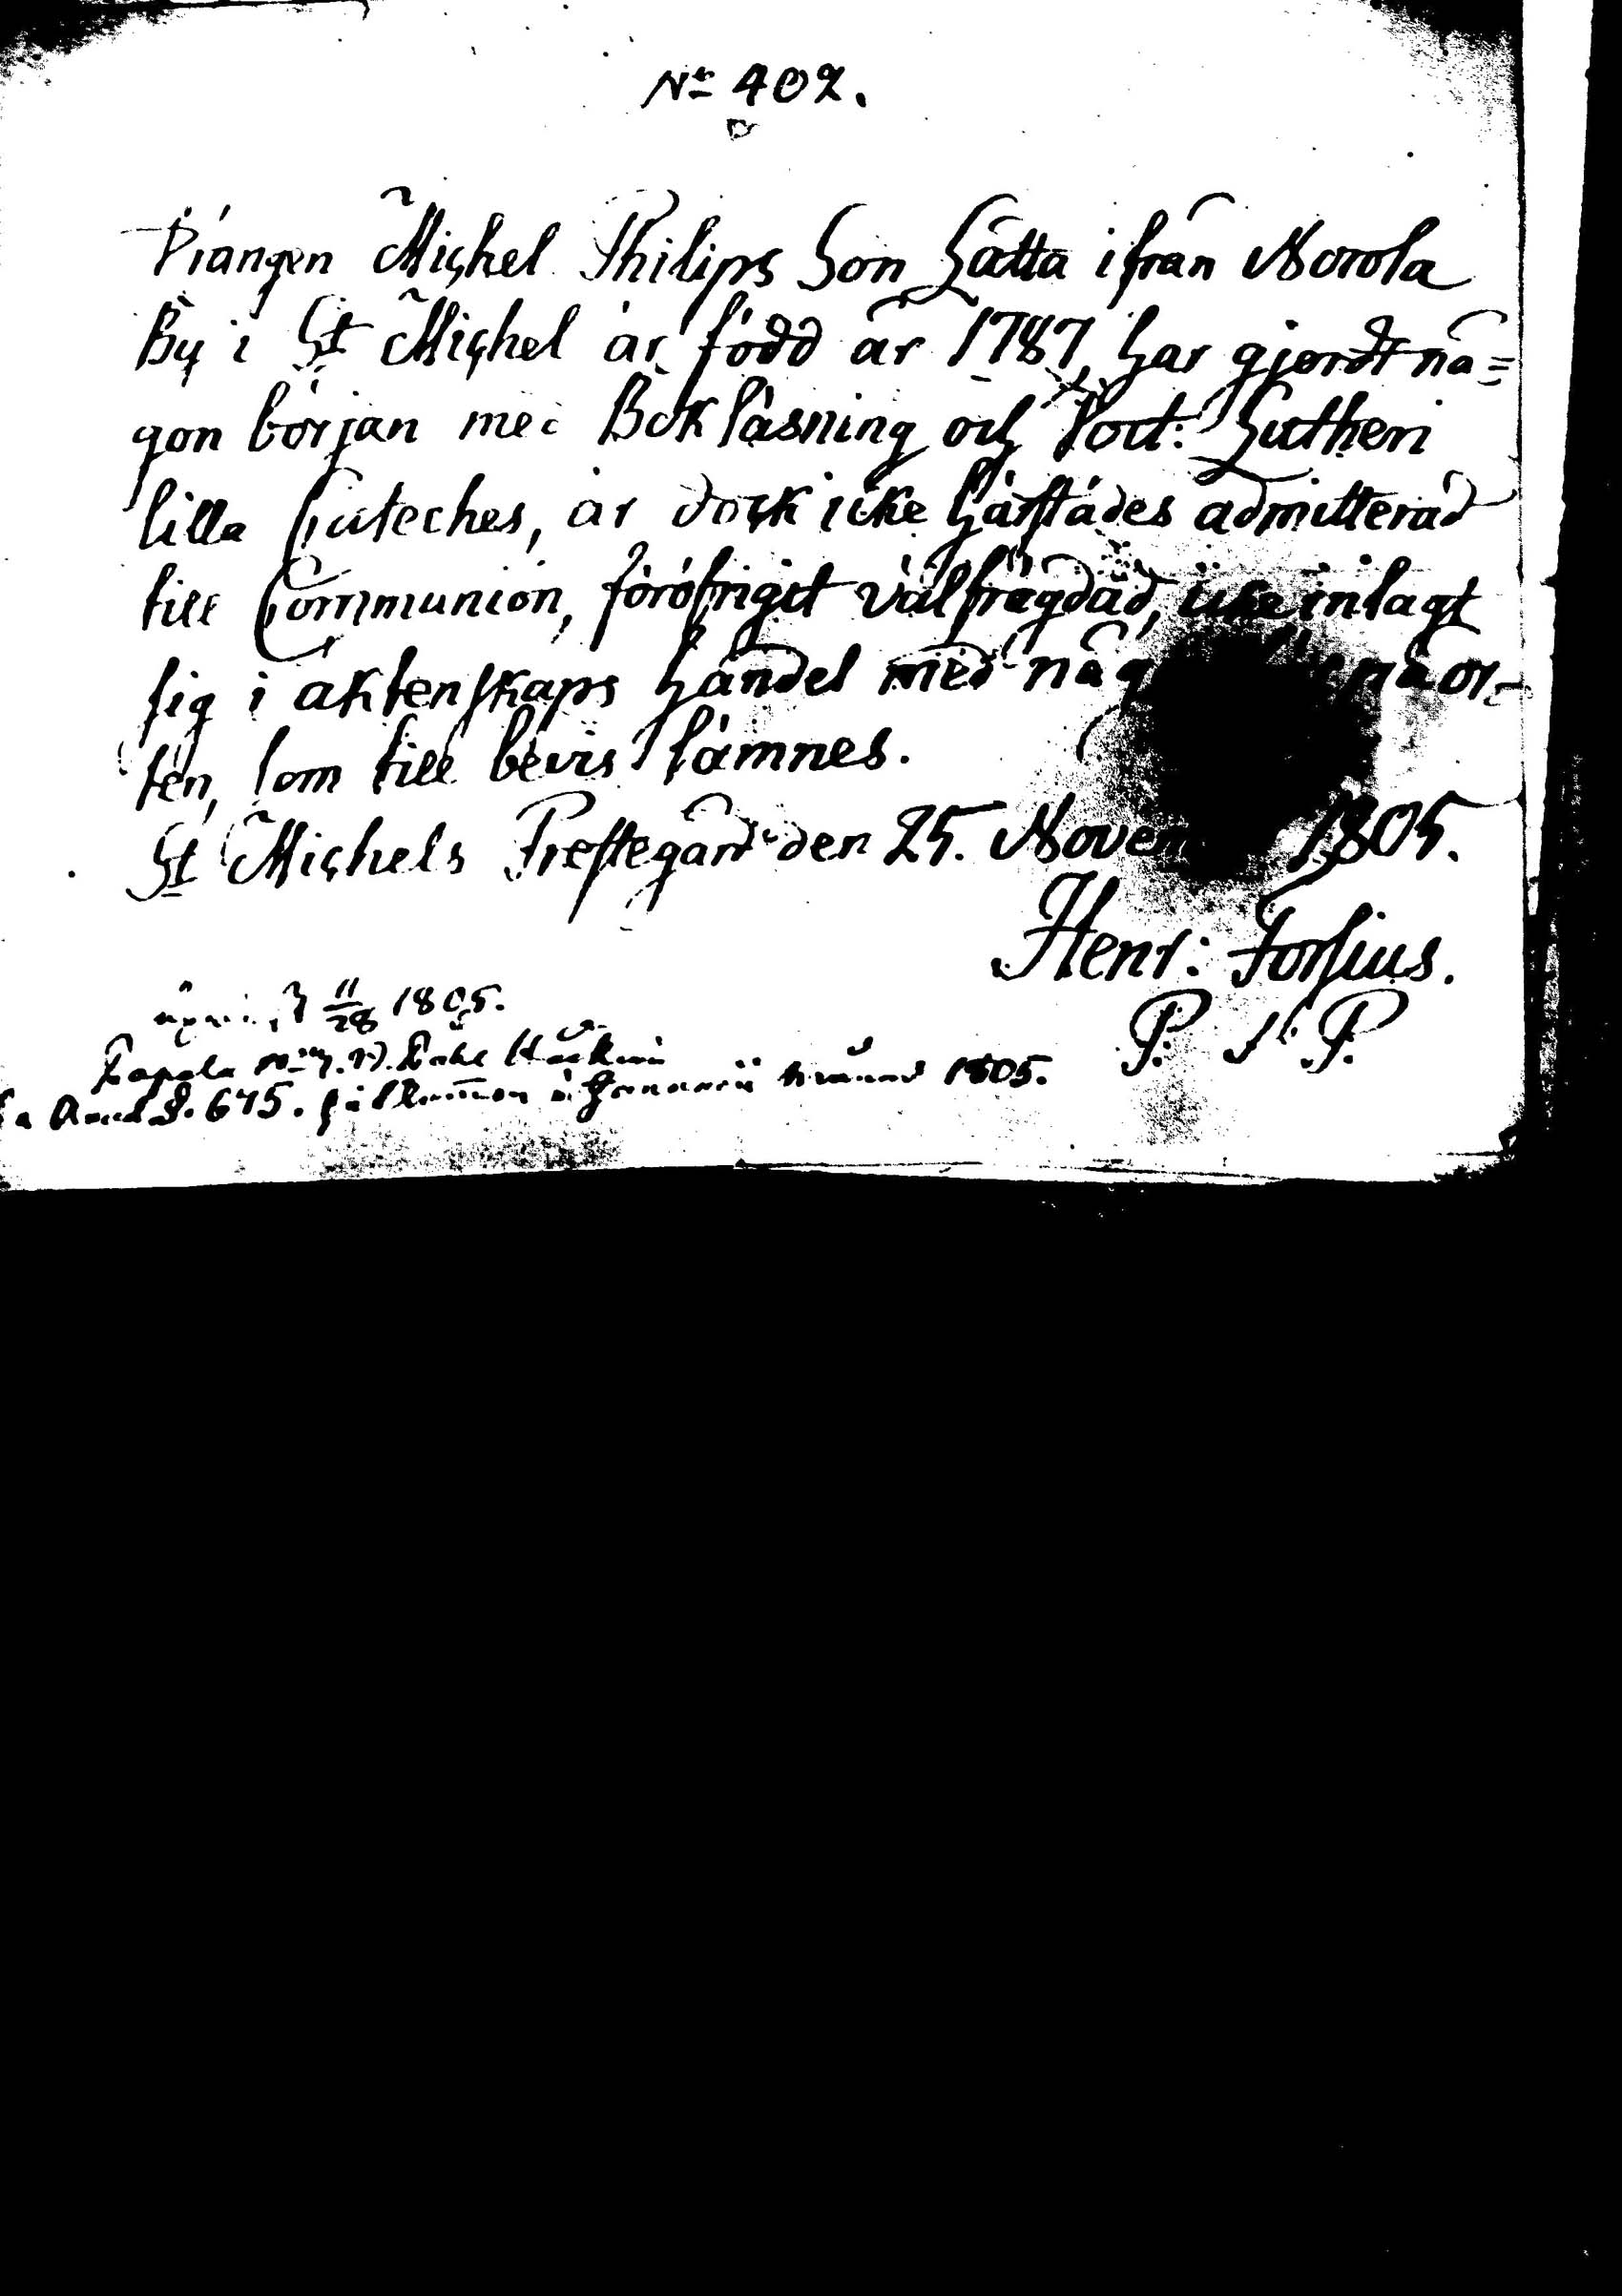 No 402.
Drängen Michel Philips Son Hätta ifrån Norola
By i St Michel är född år 1787, har gjordt nå=
gon början med Bok läsning och Doct: Lutheri
lilla Cateches, är dock icke härstädes admitterad
till Communion, föröfrigit välfrägdad, icke inlagt
sig i äktenskaps handel med någ på or-
ten, som till bevis lämnes.
St Michels Prestegård den 25. Novem 1805.
Henr: Forsius.
P. St P.
11/28 1805.
Hapala No 7.
675. Januarii 1805.